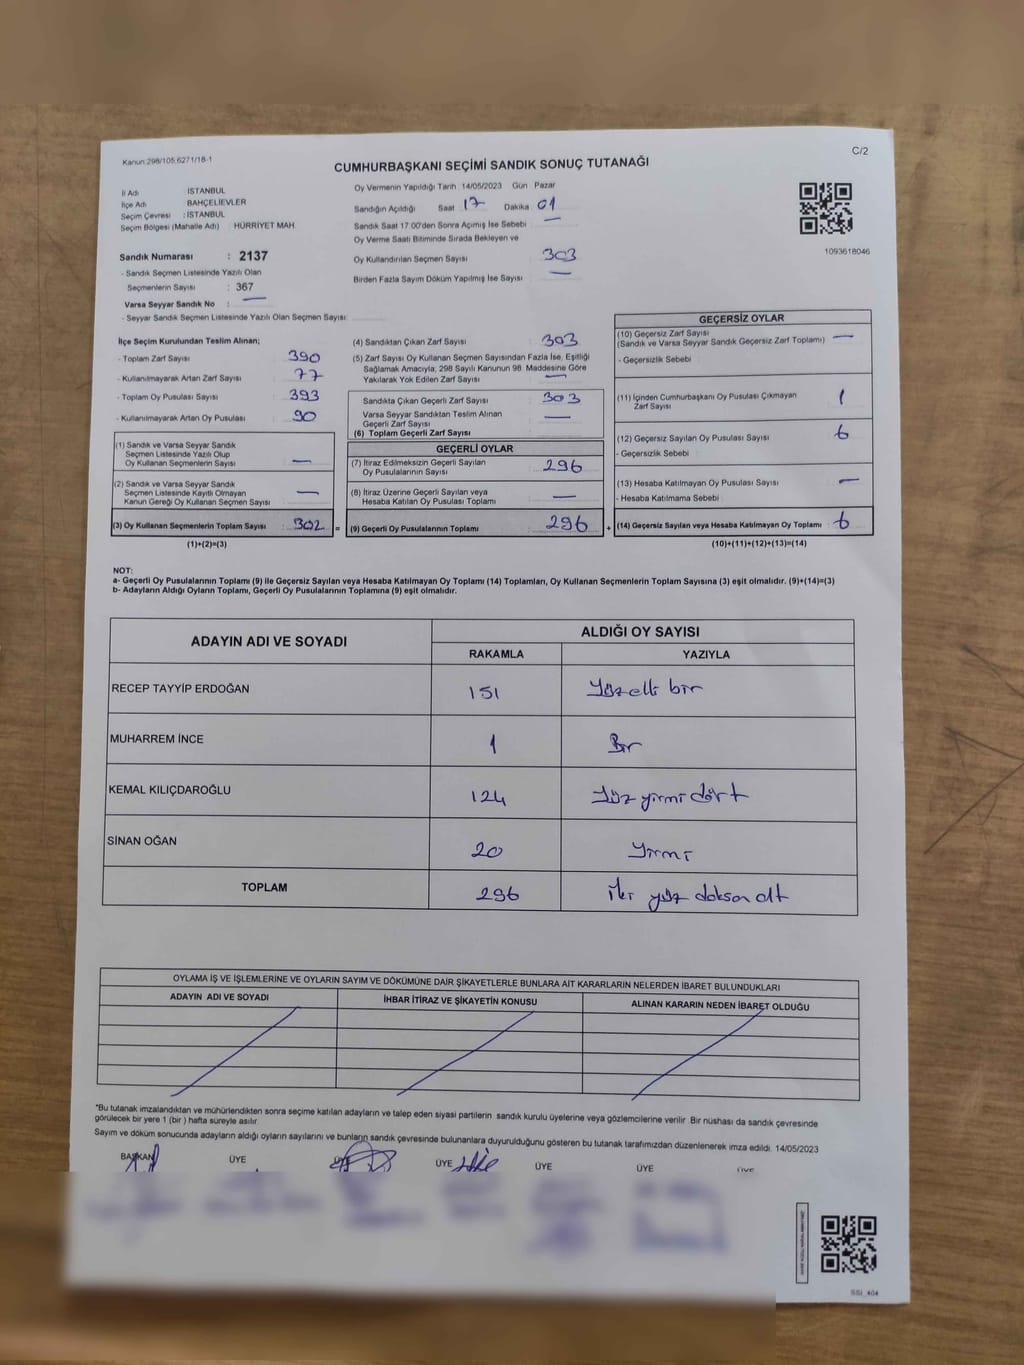 Kanun:298/105,6271/18-1
C/2
CUMHURBAŞKANI SEÇİMİ SANDIK SONUÇ TUTANAĞI
İl Adı : İSTANBUL
İlçe Adı : BAHÇELİEVLER
Seçim Çevresi : İSTANBUL
Seçim Bölgesi (Mahalle Adı) : HÜRRİYET MAH.
Sandık Numarası : 2137
- Sandık Seçmen Listesinde Yazılı Olan
Seçmenlerin Sayısı : 367
Varsa Seyyar Sandık No : —
- Seyyar Sandık Seçmen Listesinde Yazılı Olan Seçmen Sayısı:
Oy Vermenin Yapıldığı Tarih 14/05/2023 Gün Pazar
Sandığın Açıldığı Saat 17 Dakika 01
Sandık Saat 17.00'den Sonra Açımış İse Sebebi —
Oy Verme Saati Bitiminde Sırada Bekleyen ve
Oy Kullandırılan Seçmen Sayısı 303
Birden Fazla Sayım Döküm Yapılmış İse Sayısı —
1093618046
İlçe Seçim Kurulundan Teslim Alınan;
- Toplam Zarf Sayısı : 390
- Kullanılmayarak Artan Zarf Sayısı : 77
- Toplam Oy Pusulası Sayısı : 393
- Kullanılmayarak Artan Oy Pusulası : 90
(1) Sandık ve Varsa Seyyar Sandık
Seçmen Listesinde Yazılı Olup
Oy Kullanan Seçmenlerin Sayısı : —
(2) Sandık ve Varsa Seyyar Sandık
Seçmen Listesinde Kayıtlı Olmayan
Kanun Gereği Oy Kullanan Seçmen Sayısı : —
(3) Oy Kullanan Seçmenlerin Toplam Sayısı : 302 =
(1)+(2)=(3)
(4) Sandıktan Çıkan Zarf Sayısı 303
(5) Zarf Sayısı Oy Kullanan Seçmen Sayısından Fazla İse, Eşitliği
Sağlamak Amacıyla, 298 Sayılı Kanunun 98. Maddesine Göre
Yakılarak Yok Edilen Zarf Sayısı —
Sandıkta Çıkan Geçerli Zarf Sayısı : 303
Varsa Seyyar Sandıktan Teslim Alınan
Geçerli Zarf Sayısı : —
(6) Toplam Geçerli Zarf Sayısı
GEÇERLİ OYLAR
(7) İtiraz Edilmeksizin Geçerli Sayılan
Oy Pusulalarının Sayısı : 296
(8) İtiraz Üzerine Geçerli Sayılan veya
Hesaba Katılan Oy Pusulası Toplamı : —
(9) Geçerli Oy Pusulalarının Toplamı : 296 +
GEÇERSİZ OYLAR
(10) Geçersiz Zarf Sayısı
(Sandık ve Varsa Seyyar Sandık Geçersiz Zarf Toplamı) —
- Geçersizlik Sebebi
(11) İçinden Cumhurbaşkanı Oy Pusulası Çıkmayan
Zarf Sayısı 1
(12) Geçersiz Sayılan Oy Pusulası Sayısı 6
- Geçersizlik Sebebi :
(13) Hesaba Katılmayan Oy Pusulası Sayısı : —
- Hesaba Katılmama Sebebi :
(14) Geçersiz Sayılan veya Hesaba Katılmayan Oy Toplamı : 6
(10)+(11)+(12)+(13)=(14)
NOT:
a- Geçerli Oy Pusulalarının Toplamı (9) ile Geçersiz Sayılan veya Hesaba Katılmayan Oy Toplamı (14) Toplamları, Oy Kullanan Seçmenlerin Toplam Sayısına (3) eşit olmalıdır. (9)+(14)=(3)
b- Adayların Aldığı Oyların Toplamı, Geçerli Oy Pusulalarının Toplamına (9) eşit olmalıdır.
ADAYIN ADI VE SOYADI ALDIĞI OY SAYISI
RAKAMLA YAZIYLA
RECEP TAYYİP ERDOĞAN 151 Yüzelli bir
MUHARREM İNCE 1 Bir
KEMAL KILIÇDAROĞLU 124 Yüz yirmi dört
SİNAN OĞAN 20 Yirmi
TOPLAM 296 iki yüz doksan altı
OYLAMA İŞ VE İŞLEMLERİNE VE OYLARIN SAYIM VE DÖKÜMÜNE DAİR ŞİKAYETLERLE BUNLARA AİT KARARLARIN NELERDEN İBARET BULUNDUKLARI
ADAYIN ADI VE SOYADI İHBAR İTİRAZ VE ŞİKAYETİN KONUSU ALINAN KARARIN NEDEN İBARET OLDUĞU
*Bu tutanak imzalandıktan ve mühürlendikten sonra seçime katılan adayların ve talep eden siyasi partilerin sandık kurulu üyelerine veya gözlemcilerine verilir. Bir nüshası da sandık çevresinde
görülecek bir yere 1 (bir ) hafta süreyle asılır.
Sayım ve döküm sonucunda adayların aldığı oyların sayılarını ve bunların sandık çevresinde bulunanlara duyurulduğunu gösteren bu tutanak tarafımızdan düzenlenerek imza edildi. 14/05/2023
BAŞKAN ÜYE ÜYE ÜYE ÜYE ÜYE ÜYE
SSI_404